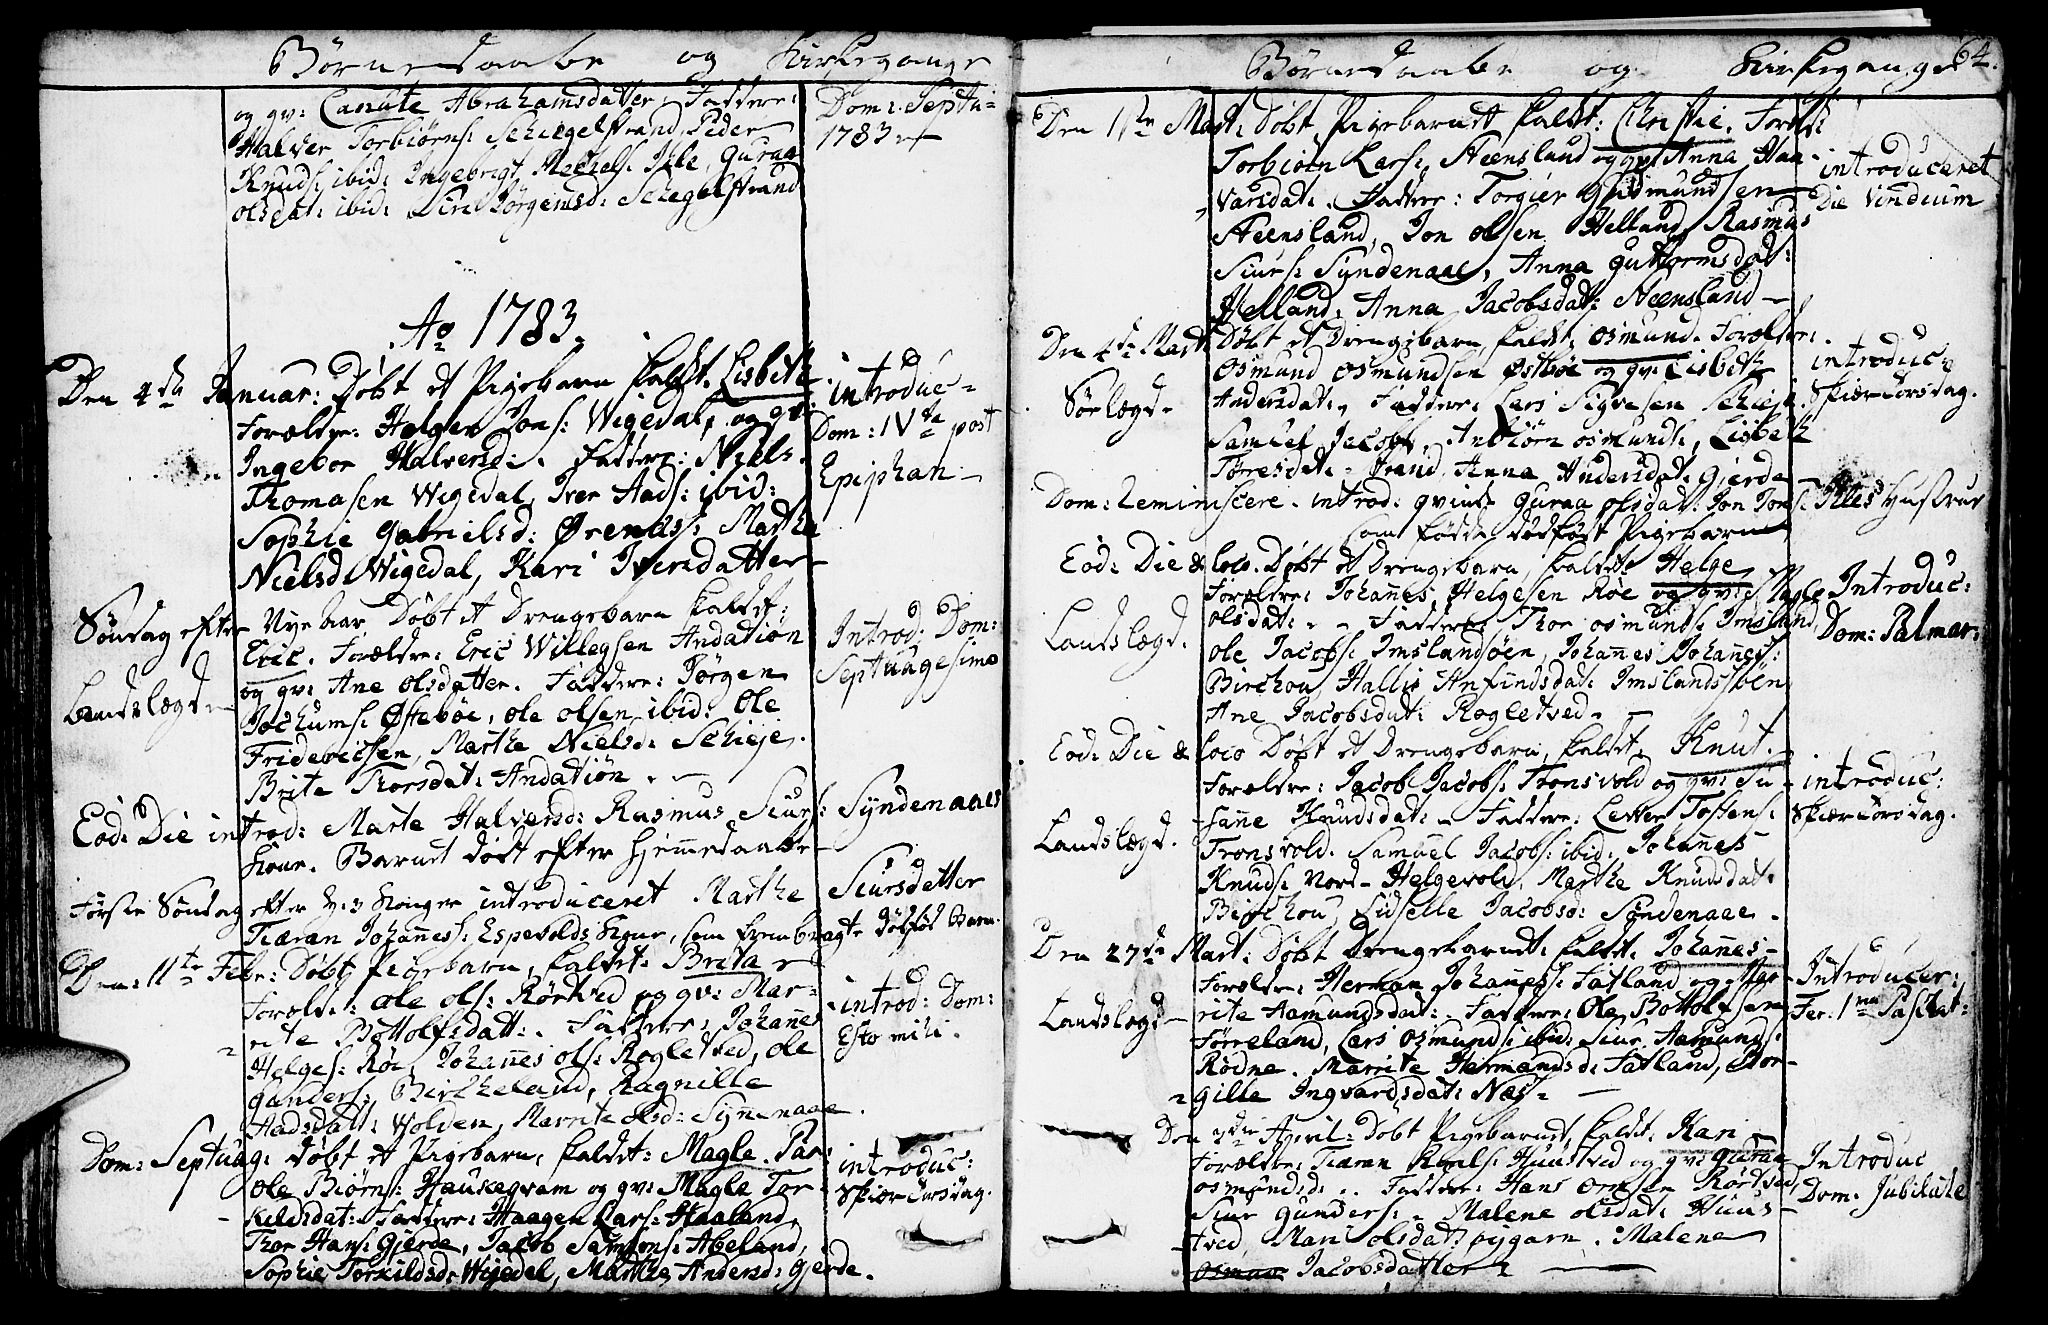 Børnedaabe og Kirkegange
og qv: Canute Abrahamsdatter, Faddere:
Halver Torbiørns: Schiegelstrand, Peder
Knuds: ibid: Ingebrigt Michels: Ille, Guraa
olsdat: ibid: Siri Jørgensd: Schegelstrand
Dom: Septu-
1783
Ao 1783.
Den 4de Januar: Døbt et Pigebarn kaldt. Lisbeth
Forældre: Helge Jons: Wigedal, og qv:
Ingebor Halversd: . Faddere: Niels
Thomasen Wigedal, Iver Aads: ibid:
Sophie Gabrielsd: Ørenæs: Marthe
Nielsd: Wigedal, Kari Iversdatter
introduc-
Dom: IVte post
Epiphan-
Søndag efter Nye Aar Døbt et Drengebarn kaldet:
Eric. Forældre: Eric Willegsen Andation
og qv: Ane olsdatter. Faddere: Jørgen
Jochums: Østebøe, ole olsen ibid: Ole
Friderichsen, Marthe Nielsd: Schieje.
Brite Thorsdat: Andatiøn .
Landslægd
Introd: Dom:
Septuagesima
Eod: Die introd: Marte Halversd: Rasmus Siurs: Syndenaaes
Kone. Barnet dødt efter Hjemmedaabe
Første Søndag efter H: 3 Konger introduceret Marthe Siursdetter
Tiæran Johaness: Espevolds Kone, som frembragte dødfød Barn.
Den: 11te Febr: Døbt Pigebarn, kaldet: Brita
Foræld: ole ols: Rørtved og qv: Mar-
rite Bottolfsdatt: . Faddere: Johanes
Helges: Røe, Johanes ols: Rogletved, ole
Gunders: Birkeland, Ragnille
Aadsdatt: Wolden, Marrite olsd: Synenaae.
introd: Dom:
Esto mihi.
Dom: Septuag: døbt et Pigebarn, kaldet: Magle. Par:
ole Biørns: Haukeqvam og qv: Magle Tor-
kildsdat: Faddere: Haagen Lars: Haaland,
Thor Hans: Gjerde, Jacob Samsons: Abeland,
Sophie Torkildsd: Wigedel, Marthe Andersd: Gjerde.
introduc:
Skiærtorsdag.
Børnedaabe og Kirkegange 64.
Den 1ste Mart: Døbt Pigebarnet kaldt: Christie. Foræld:
Torbiørn Lars: Steensland og qv: Anna Haa-
varsdat. Faddere: Torgier Gudmundsen
Steensland, Jon olsen Helland, Rasmus
Siurs: Syndenaae, Anna Guttormsdat:
Helland, Anna Jacobsdat: Steensland
introduceret
Die Viridium
Den 4de Mart: Døbt et Drengebarn kaldt: Osmund. Forældre:
Osmund osmundsen Østbøe og qv: Lisbeth
Andersdat: Faddere: Lars Sigvesen Schieje.
Samuel Jacobs, Anbiørn osmunds:, Lisbeth
Torresdat: Strand, Anna Andersdat: Gjerde
Sørlægd-
introduc-
Skiærtorsdag.
Dom: Reminiscere. introd: qvind: Guraa olsdat: Jon Jons: Illes Hustrue
som fødde dødfødt Pigebarn
Eod: Die & loco. Døbt et Drengebarn, kaldet: Helge
Forældre: Johanes Helgesen Røe og qv: Magle
olsdat: Faddere: Thor osmunds: Imsland,
ole Jacobs: Imslandsøen, Johanes Johaness:
Birchou, Hallie Anfindsdat: Imslandssøen
Ane Jacobsdat: Rogletved.
Landslægd.
Introduc:
Dom: Palmar:
Eod: Die & loco Døbt et Drengebarn, kaldt, Knut.
Forældre: Jacob Jacobs: Tronsvold og qv: Su-
sanne Knudsdat: Faddere: Levor Tostens:
Tronsvold. Samuel Jacobs: ibid: Johanes
Knuds: Nord- Helgevold. Marthe Knudsdat:
Birchou, Sidselle Jacobsd: Søndenaae.
Landslægd.
introduc:
Skiærtorsdag.
Den 27de Mart: Døbt Drengebarnet: kaldt. Johanes
Forældre: Herman Johaness: Fatland og Mar-
rite Aamundsdat: . Faddere: Ole Bottolfsen
Førreland, Lars osmunds: ibid: Siur Aamunds:
Rødne. Marrite Hermandsd: Fatland, Bor-
gille Ingvardsdat: Næs.
Landslægd
Introducer:
Fer: 1ma Paschat:
Den April: Døbt Pigebarnet, kaldt: Kari
Forældre: Tiæran Roals: Huustved og qv: Guraa
osmundsd: . Faddere: Hans ormsen Rørtved,
Siur Gunders: . Malene olsdat: Huus-
tved, Mari olsdat: pijgarn. Malene
Jacobsdatter
Introduc
Dom: Jubilate